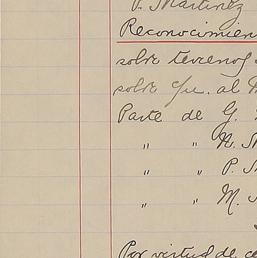 P. Martinez
Reconocimien
sobre terrenos
sobre c/u. al
Parte de G.
" " N.
" " P.
" " M.
Por virtud de ce